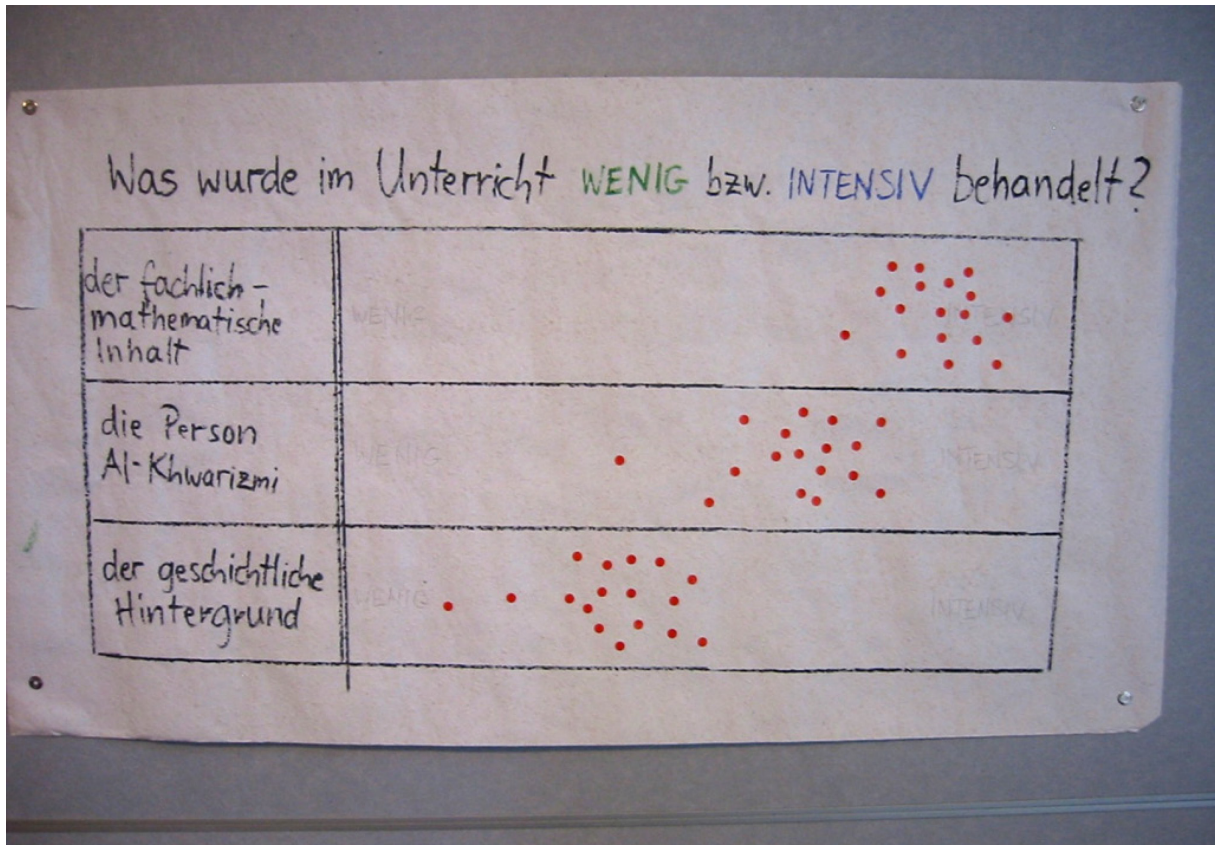 Was wurde im Unterricht WENIG bzw. INTENSIV behandelt?
der fachlich-
mathematische
Inhalt
WENIG
INTENSIV
die Person
Al-Khwarizmi
WENIG
INTENSIV
der geschichtliche
Hintergrund
WENIG
INTENSIV